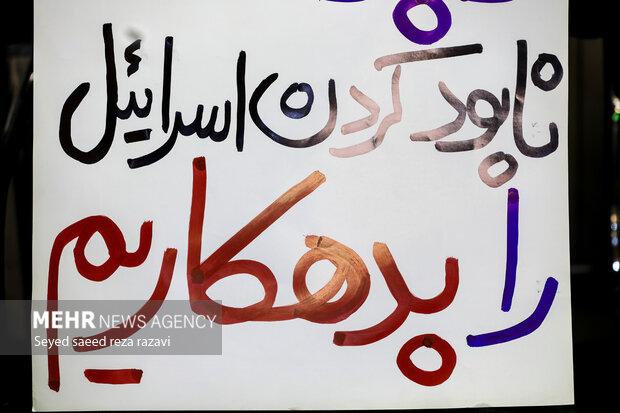 نابود کردن اسرائیل
را بدهکاریم
MEHR NEWS AGENCY
Seyed saeed reza razavi